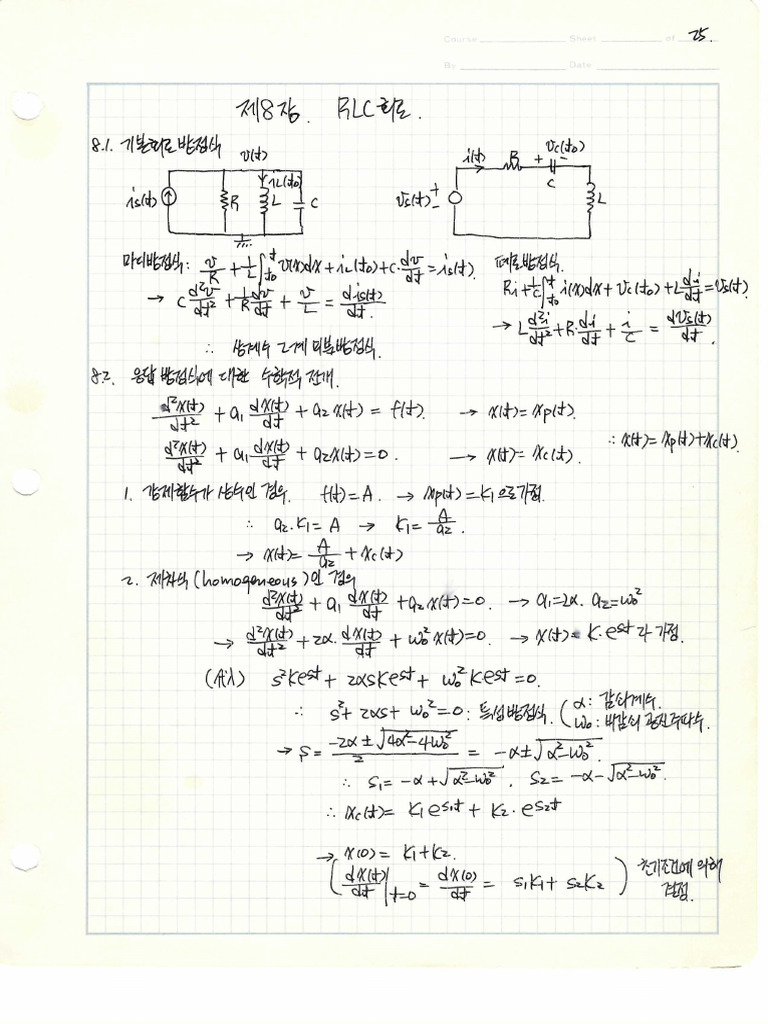 Course Sheet of 25.
By Date
제8장. RLC회로.
8.1. 기본회로 방정식
v(t)
is(t) R iL(t0) L C
i(t) R + vc(t0) - C
vs(t) + - L
마디방정식: v/R + 1/L ∫t0^t v(x)dx + iL(t0) + C·dv/dt = is(t).
→ C d²v/dt² + 1/R dv/dt + v/L = dis(t)/dt.
폐로방정식.
Ri + 1/C ∫t0^t i(x)dx + vc(t0) + L di/dt = vs(t).
→ L d²i/dt² + R·di/dt + i/C = dvs(t)/dt.
∴ 상계수 2계 미분방정식.
8.2. 응답 방정식에 대한 수학적 전개.
d²x(t)/dt² + a1 dx(t)/dt + a2 x(t) = f(t). → x(t) = xp(t).
d²x(t)/dt² + a1 dx(t)/dt + a2 x(t) = 0. → x(t) = xc(t).
∴ x(t) = xp(t) + xc(t).
1. 강제함수가 상수인 경우. f(t) = A. → xp(t) = K1으로 가정.
∴ a2·K1 = A → K1 = A/a2.
→ x(t) = A/a2 + xc(t)
2. 제차식(homogeneous)인 경우
d²x(t)/dt² + a1 dx(t)/dt + a2 x(t) = 0. → a1 = 2α. a2 = ω0²
→ d²x(t)/dt² + 2α·dx(t)/dt + ω0² x(t) = 0. → x(t) = K·e^st 라 가정.
s²Ke^st + 2αsKe^st + ω0²Ke^st = 0.
∴ s² + 2αs + ω0² = 0 : 특성방정식. ( α: 감쇠계수.
ω0: 비감쇠 공진주파수.
→ s = (-2α ± √(4α²-4ω0²))/2 = -α ± √(α²-ω0²).
∴ s1 = -α + √(α²-ω0²). s2 = -α - √(α²-ω0²).
∴ xc(t) = K1 e^s1t + K2·e^s2t
→ x(0) = K1 + K2.
( dx(t)/dt |t=0 = dx(0)/dt = s1K1 + s2K2 ) 초기조건에 의해
결정.